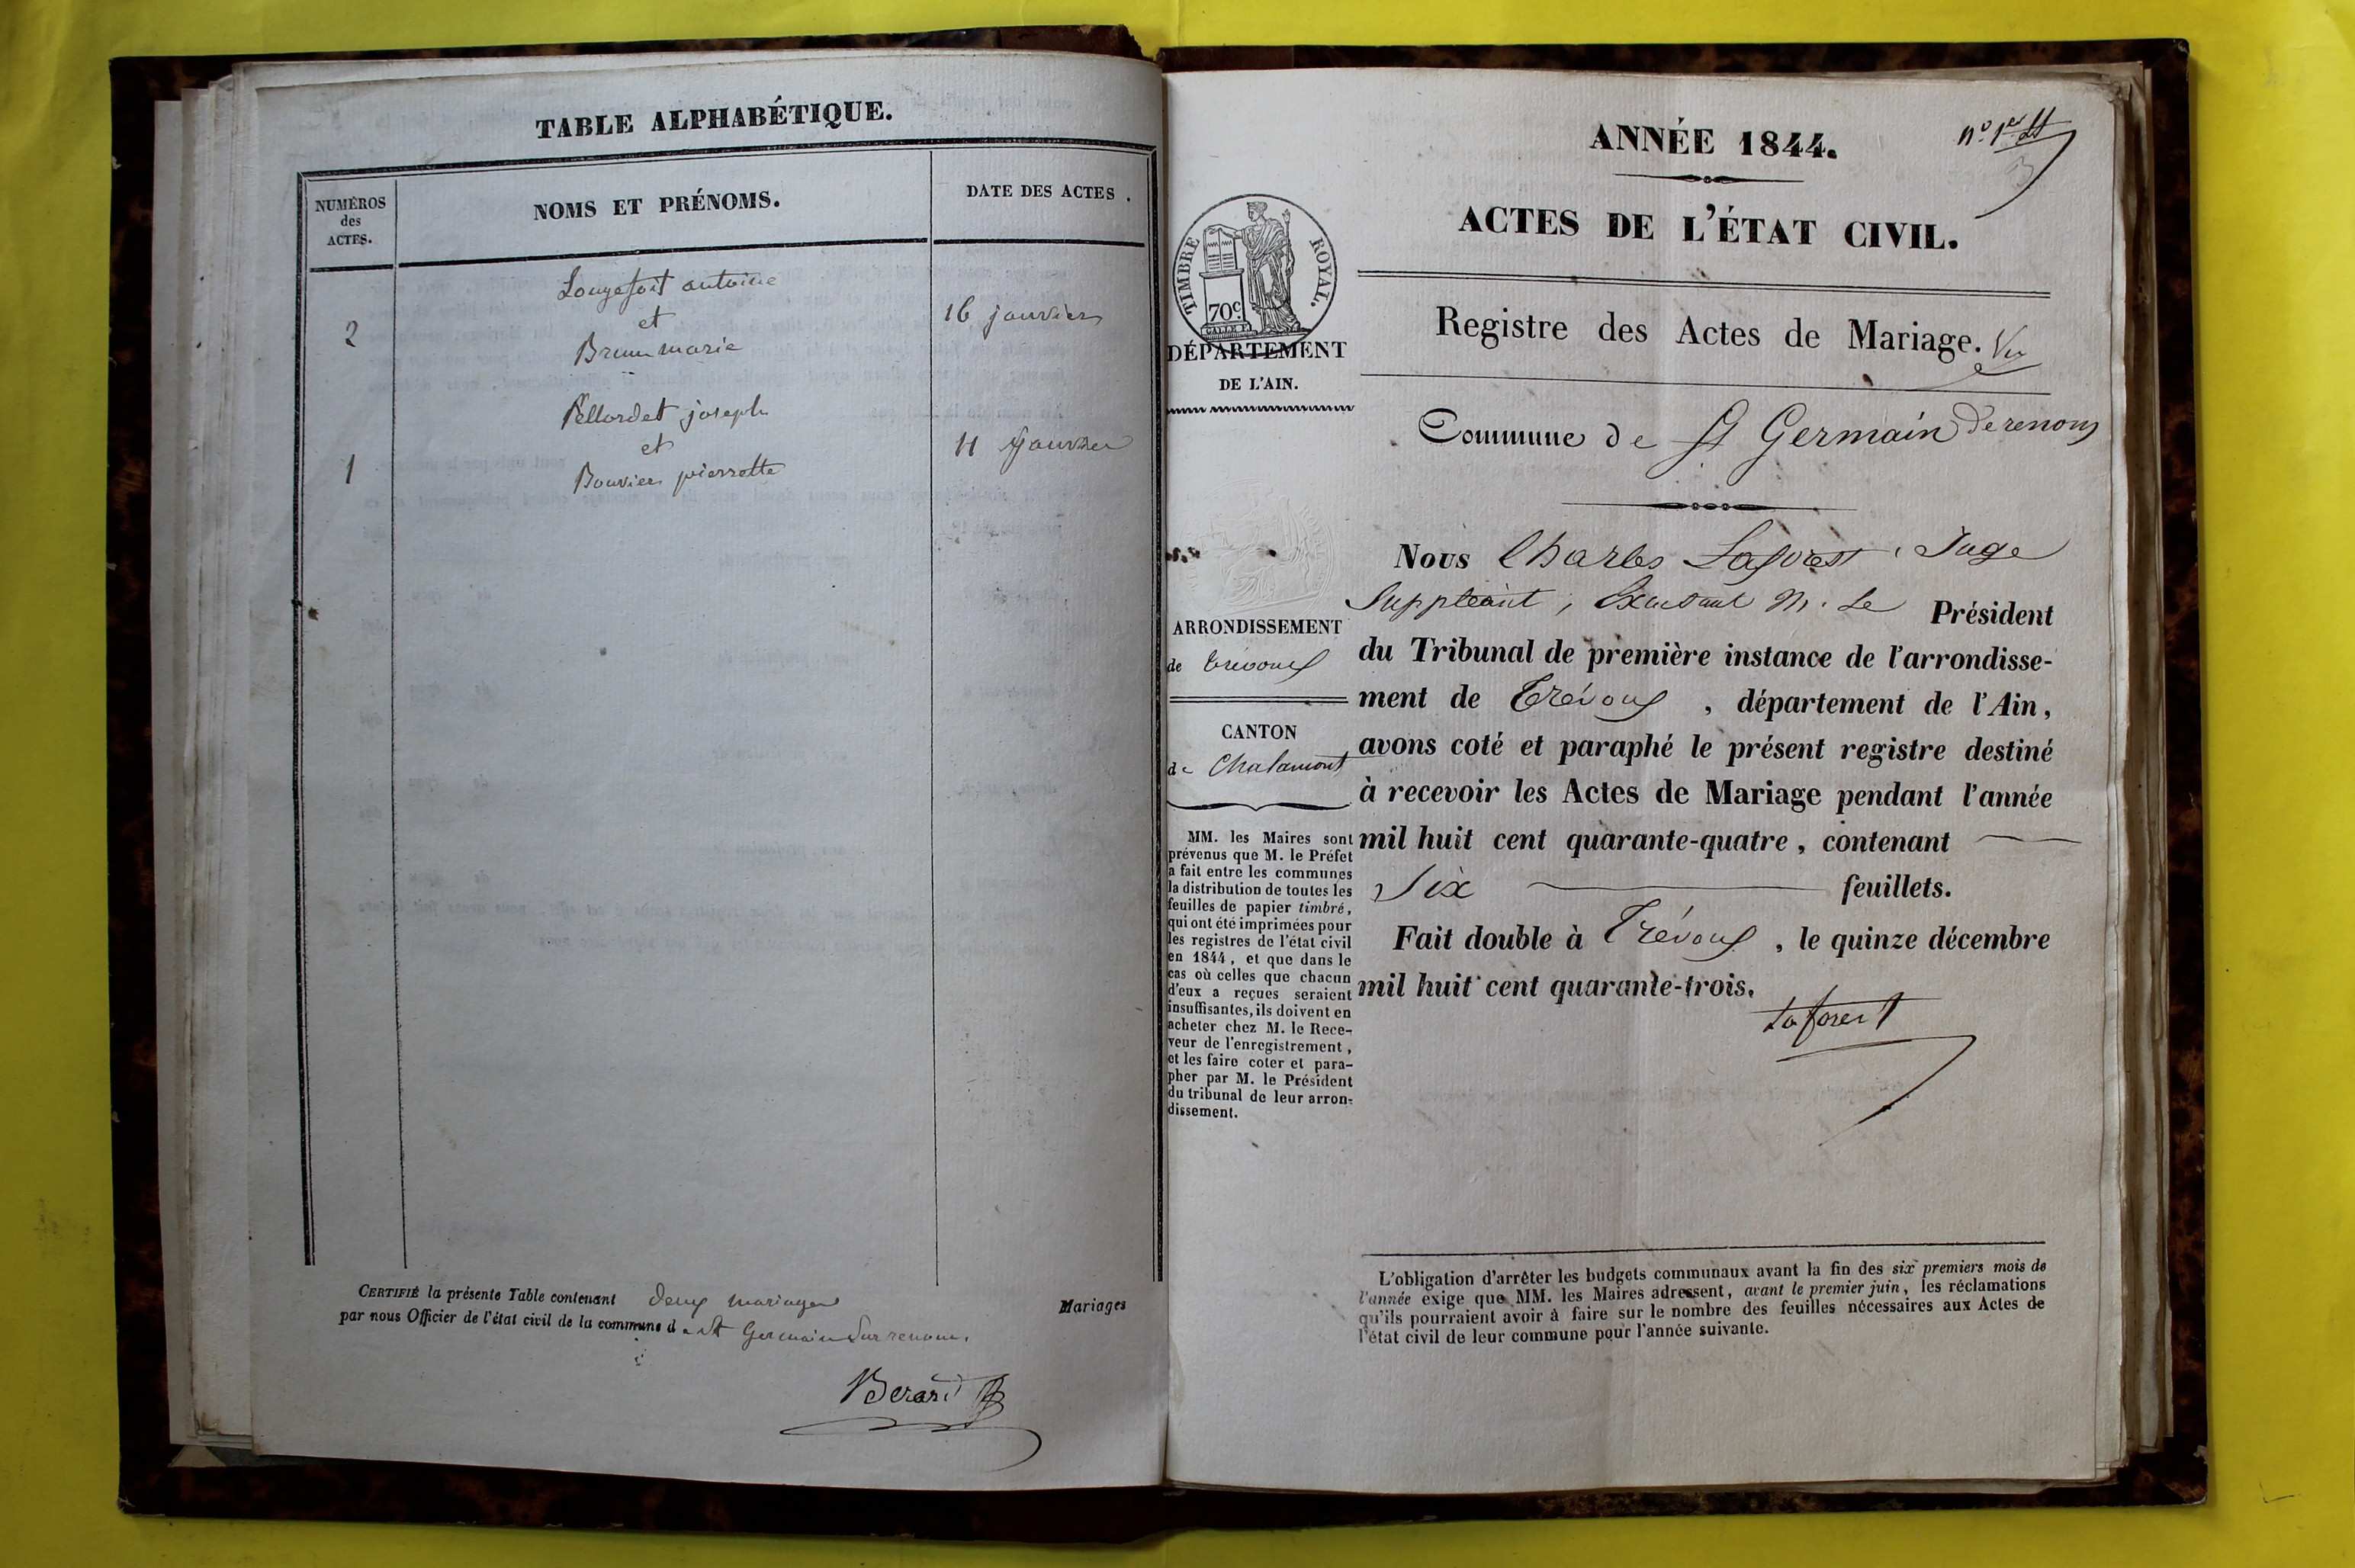 TABLE ALPHABÉTIQUE.
NUMÉROS
des
ACTES.
NOMS ET PRÉNOMS.
DATE DES ACTES.
Longefait antoine
2 et 16 janvier
Brun marie
Pellordet joseph
1 et 11 Janvier
Bouvier pierrette
CERTIFIÉ la présente Table contenant deux mariages Mariages
par nous Officier de l'état civil de la commune de St Germain Sur renom.
Berard
ANNÉE 1844.
n° 1er
ACTES DE L'ÉTAT CIVIL.
TIMBRE ROYAL.
70c
DÉPARTEMENT
DE L'AIN.
Registre des Actes de Mariage. Vu
Commune de St Germain de renom
ARRONDISSEMENT
de trévoux
CANTON
de Chalamont
MM. les Maires sont
prévenus que M. le Préfet
a fait entre les communes
la distribution de toutes les
feuilles de papier timbré,
qui ont été imprimées pour
les registres de l'état civil
en 1844, et que dans le
cas où celles que chacun
d'eux a reçues seraient
insuffisantes, ils doivent en
acheter chez M. le Rece-
veur de l'enregistrement,
et les faire coter et para-
pher par M. le Président
du tribunal de leur arron-
dissement.
Nous Charles Laforest, Juge
Suppléant, Exerçant M. Le Président
du Tribunal de première instance de l'arrondisse-
ment de Trévoux, département de l'Ain,
avons coté et paraphé le présent registre destiné
à recevoir les Actes de Mariage pendant l'année
mil huit cent quarante-quatre, contenant
Six feuillets.
Fait double à Trévoux, le quinze décembre
mil huit cent quarante-trois.
Laforest
L'obligation d'arrêter les budgets communaux avant la fin des six premiers mois de
l'année exige que MM. les Maires adressent, avant le premier juin, les réclamations
qu'ils pourraient avoir à faire sur le nombre des feuilles nécessaires aux Actes de
l'état civil de leur commune pour l'année suivante.